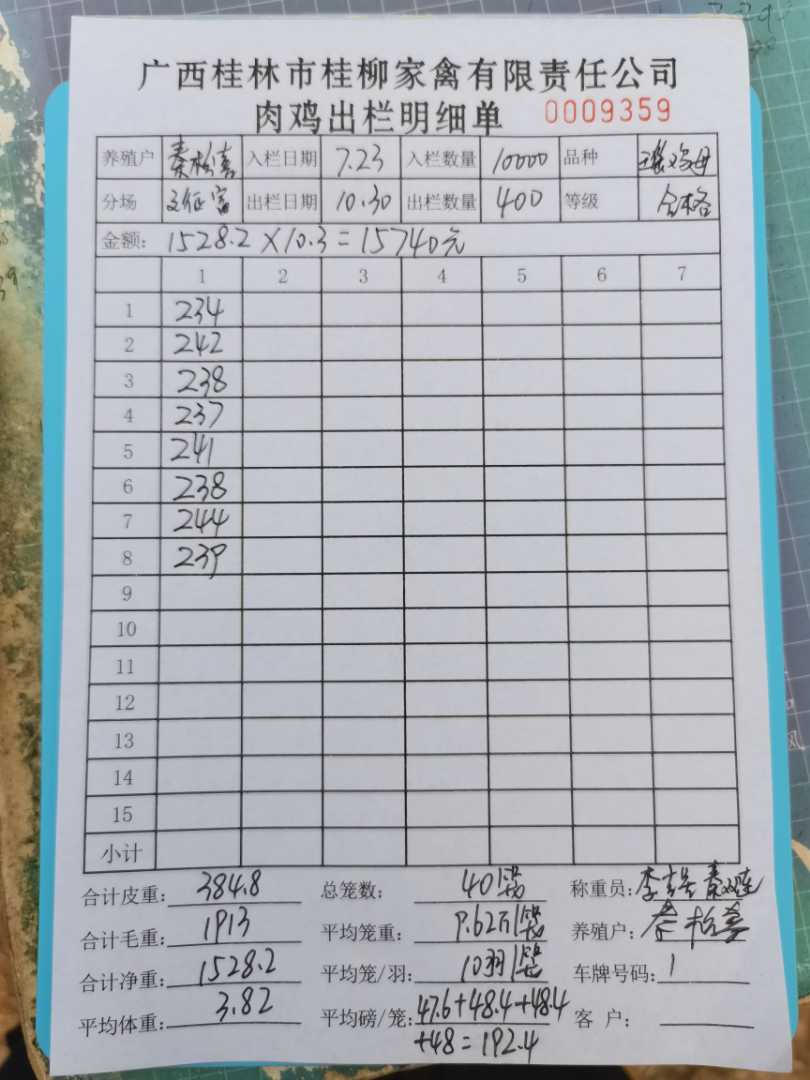 广西桂林市桂柳家禽有限责任公司
肉鸡出栏明细单 0009359
养殖户 秦松喜 入栏日期 7.23 入栏数量 10000 品种 鸡母
分场 出栏日期 10.30 出栏数量 400 等级 合格
金额: 1528.2×10.3=15740元
1 2 3 4 5 6 7
1 234
2 242
3 238
4 237
5 241
6 238
7 244
8 239
9
10
11
12
13
14
15
小计
合计皮重: 384.8 总笼数: 40笼 称重员:
合计毛重: 1913 平均笼重: 9.62斤/笼 养殖户: 秦松喜
合计净重: 1528.2 平均笼/羽: 10羽/笼 车牌号码: 1
平均体重: 3.82 平均磅/笼: 47.6+48.4+48.4 客 户:
+48=192.4